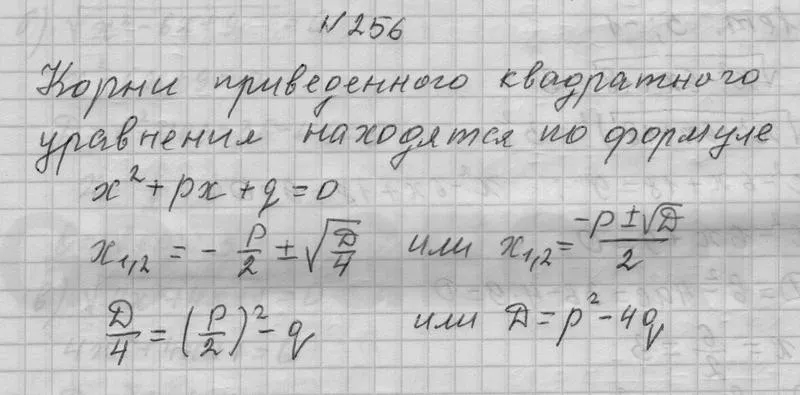 N256
Корни приведенного квадратного
уравнения находятся по формуле
x² + px + q = 0
x₁,₂ = - p/2 ± √(D/4) или x₁,₂ = (-p ± √D)/2
D/4 = (p/2)² - q или D = p² - 4q